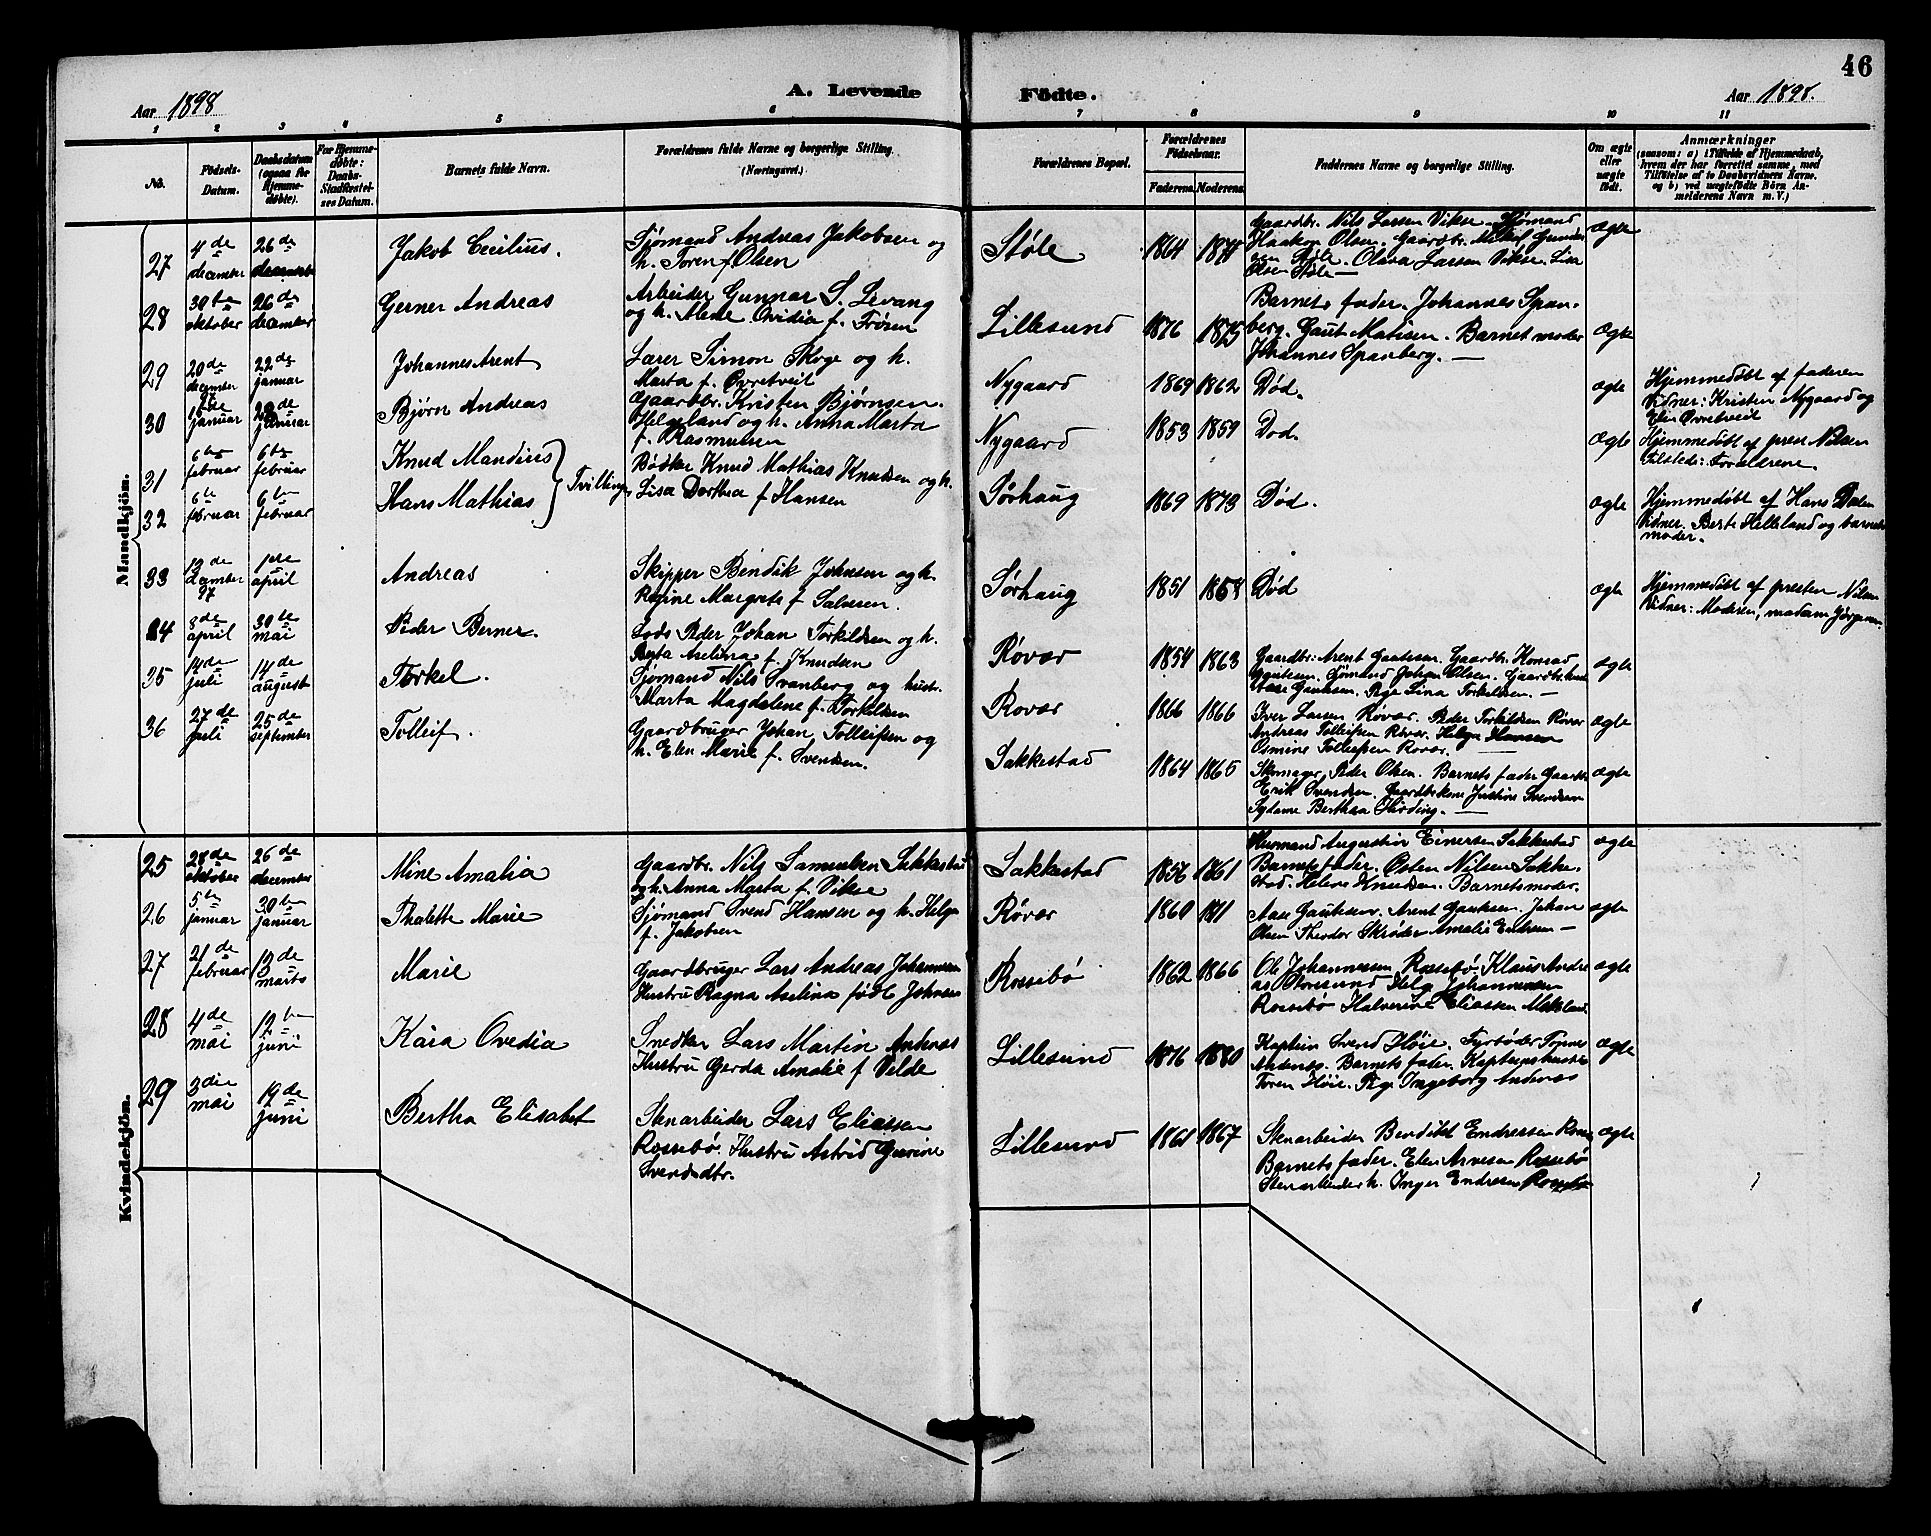 46
Aar 1898
A. Levende
Födte.
Aar 1898.
1 2 3 4 5 6 7 8 9 10 11
No.
Födsels-
Datum.
Daabsdatum
(ogsaa for
Hjemme-
døbte).
For Hjemme-
døbte:
Daabs-
Stadfæstel-
ses Datum.
Barnets fulde Navn.
Forældrenes fulde Navne og borgerlige Stilling
(Næringsvei.)
Forældrenes Bopæl.
Forældrenes
Födselsaar.
Faderens. Moderens.
Faddernes Navne og borgerlige Stilling.
Om ægte
eller
uægte
født.
Anmærkninger
(saasom: a) i Tilfælde af Hjemmedaab,
hvem der har forrettet samme, med
Tilføielse af to Daabsvidners Navne,
og b) ved uægtefødte Börn An-
melderens Navn m. V.)
Mandkjön.
27
4de
december
26de
december
Jakob Cecilius.
Sjømand Andreas Jakobsen og
h. Toren f. Olsen
Støle
1864
Gaardbr. Nils Larsen Vikse. Sjømand
Haakon Olsen. Gaardbr.
Støle. Olava Larsen Vikse. Lisa
Olsen Støle —
ægte
28
30te
oktober
26de
december
Gerner Andreas
Arbeider Gunnar S. Levang
og h. Alene Ovidia f. Frøsen
Lillesund
1876 1875
Barnets fader. Johannes Span-
berg. Gaut Matisen. Barnet moder
Johannes Spanberg. —
ægte
29
20de
december
97
22de
januar
Johannes Arent
Lærer Simon Skoge og h.
Marta f. Øvretveit
Nygaard
1869 1862
Død.
ægte
Hjemmedøbt af faderen
Vidner: Kristen Nygaard og
Elen Øvretveit
30
januar
januar
Bjørn Andreas
Gaardbr. Kristen Bjørnsen.
Helgeland og h. Anna Marta
f. Rasmussen
Nygaard
1853 1859
Død.
ægte
Hjemmedøbt af prest Nilsen
Tilstede: Forældrene
31
6te
februar
6te
februar
Knud Mandius
32
6te
februar
6te
februar
Hans Mathias
Tvillinger
Bødker Knud Mathias Knudsen og h.
Lisa Dorthea f Hansen
Sørhaug
1869 1873
Død.
ægte
Hjemmedøbt af Hans Dalen
Vidner. Berte Helleland og barnets
moder.
33
13de
december
97
1ste
april
Andreas
Skipper Bendik Johnsen og h.
Regine Margrete f Salvesen.
Sørhaug
1851 1858
Død
ægte
Hjemmedøbt af presten Nilsen
Vidner: Moderen, madam Jørgensen
34
8de
april
30te
mai
Peder Berner.
Lods Peder Johan Torkildsen og h.
Berta Aselina f. Knudsen
Røvær
1854 1863
Gaardbr: Arent Gautesen. Gaardbr. Konrad
Gautesen. Sjømand Johan Olsen. Gaardbr.kone
Aase Gautesen. Pige Lina Torkildsen. —
ægte
35
14de
juli
14de
august
Torkel.
Sjømand Nils Svanberg og hustr.
Marta Magdelene f. Torkildsen
Røvær
1866 1866
Iver Larsen Røvær. Peder Torkildsen Røvær
Andreas Tolleifsen Røvær. Helga Hansen
Osmine Tolleifsen Røvær. —
ægte
36
27de
juli
25de
september
Tolleif.
Gaardbruger Johan Tolleifsen og
h. Elen Marie f. Svendsen.
Sakkestad
1864 1865
Skomager Peder Olsen. Barnets fader Gaardbr.
Erik Svendsen. Gaardbr.kone Justine Svendsen
Sydame Berthea Hirding. —
ægte
Kvindekjön.
25
28de
oktober
26de
december
Mine Amalia
Gaardbr. Nils Samuelsen Sakkestad
og h. Anna Marta f. Vikse
Sakkestad
1856 1861
Husmand Augustin Einersen Sakkestad
Barnets fader. Osten Nilsen Sakke-
stad. Helene Knudsen. Barnets moder.
ægte
26
5te
januar
30te
januar
Thalette Marie
Sjømand Svend Hansen og h. Helga
f. Jakobsen
Røvær
1860
Aase Gautesen. Arent Gautesen. Johan
Olsen Theodor Skrøder Amalie Endresen —
ægte
27
21de
februar
13de
marts
Marie
Gaardbruger Lars Andreas Johannesen
Hustru Ragna Aselina født Johnsen
Rossebø
1862 1866
Ole Johannessen Rossebø. Klaus Andre
as Storesund Helga Johannessen
Rossebø Halverine Eliassen
ægte
28
4de
mai
12te
juni
Kaia Ovedia
Snedker Lars Martin Andenæs
Hustru Gerda Amalie f Velde
Lillesund
1876 1880
Kaptein Svend Høie. Fyrbøder
Andenæs. Barnets fader. Kapteins hustru
Toren Høie. Pige Ingeborg Andenæs
ægte
29
3die
mai
19de
juni
Bertha Elisabet
Stenarbeider Lars Eliassen
Rossebø. Hustru Astrid Gurine
Svendsdtr.
Lillesund
1861 1867
Stenarbeider Bendikt Endresen
Barnets fader. Elen Arnesen Rossebø
Stenarbeider h. Inger Endresen Rossebø
ægte